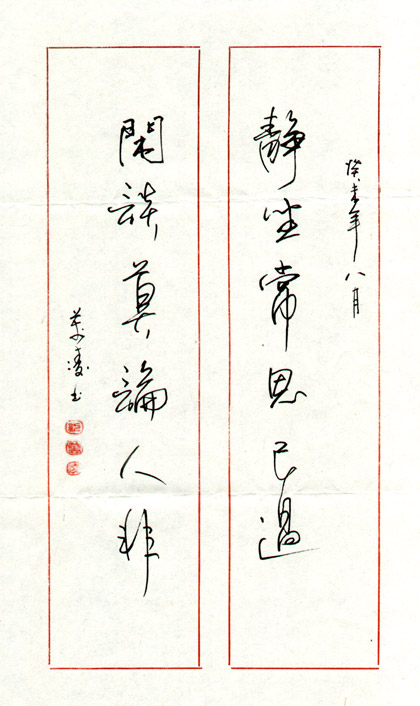 癸未年八月
静坐常思己過
閑談莫論人非
凌书